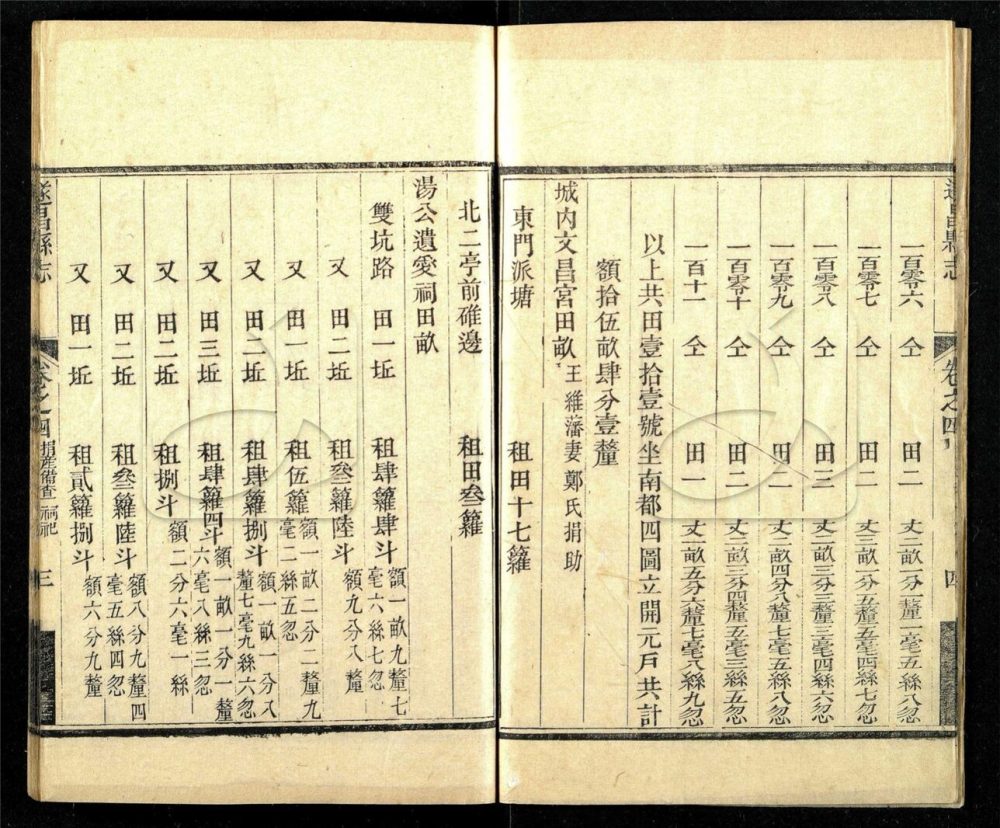 遂昌縣志
卷之四
四
一百零六 仝 田二 丈二畝一分一釐一毫五絲八忽
一百零七 仝 田二 丈三畝一分五釐五毫四絲七忽
一百零八 仝 田三 丈二畝三分三釐三毫四絲六忽
一百零九 仝 田一 丈二畝四分八釐七毫五絲八忽
一百零十 仝 田二 丈二畝三分四釐五毫三絲五忽
一百十一 仝 田一 丈二畝五分六釐七毫八絲九忽
以上共田壹拾壹號坐南都四圖立開元戶共計
額拾伍畝肆分壹釐
城內文昌宮田畝 王維藩妻鄭氏捐助
東門派塘 租田十七籮
北二亭前碓邊 租田叁籮
湯公遺愛祠田畝
雙坑路 田一坵 租肆籮肆斗 額一畝九釐七毫六絲七忽
又 田二坵 租叁籮陸斗 額九分八釐
又 田一坵 租伍籮 額一畝二分二釐九毫二絲五忽
又 田二坵 租肆籮捌斗 額一畝一分八釐七毫九絲六忽
又 田三坵 租肆籮四斗 額一畝一分一釐六毫八絲三忽
又 田二坵 租捌斗 額二分六毫一絲
又 田二坵 租叁籮陸斗 額八分九釐四毫五絲四忽
又 田一坵 租貳籮捌斗 額六分九釐
遂昌縣志
卷之四 捐產備查 祠祀
三